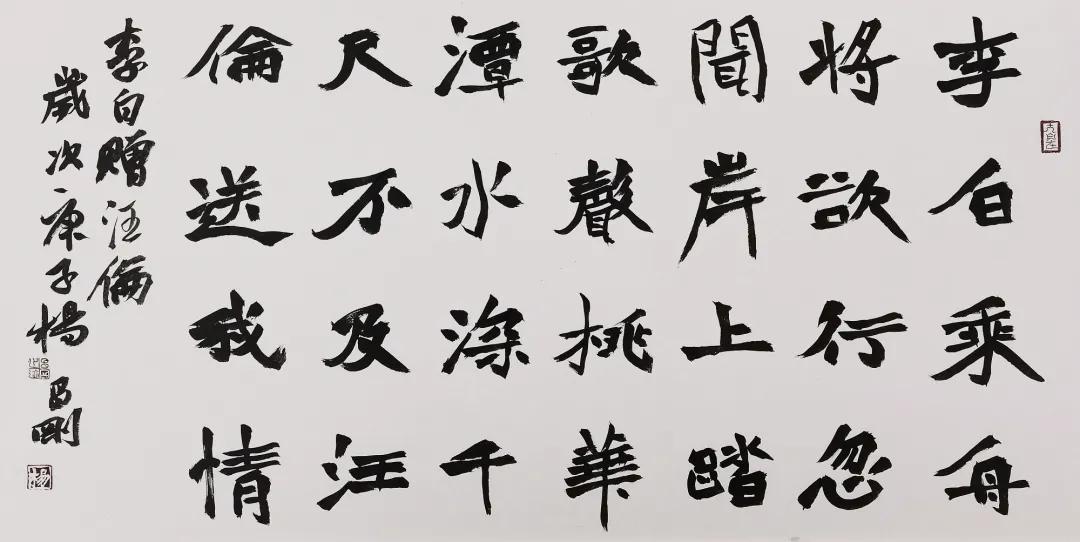 李白乘舟
將欲行忽
聞岸上踏
歌聲桃華
潭水深千
尺不及汪
倫送我情
李白贈汪倫
歲次庚子楊昌剛